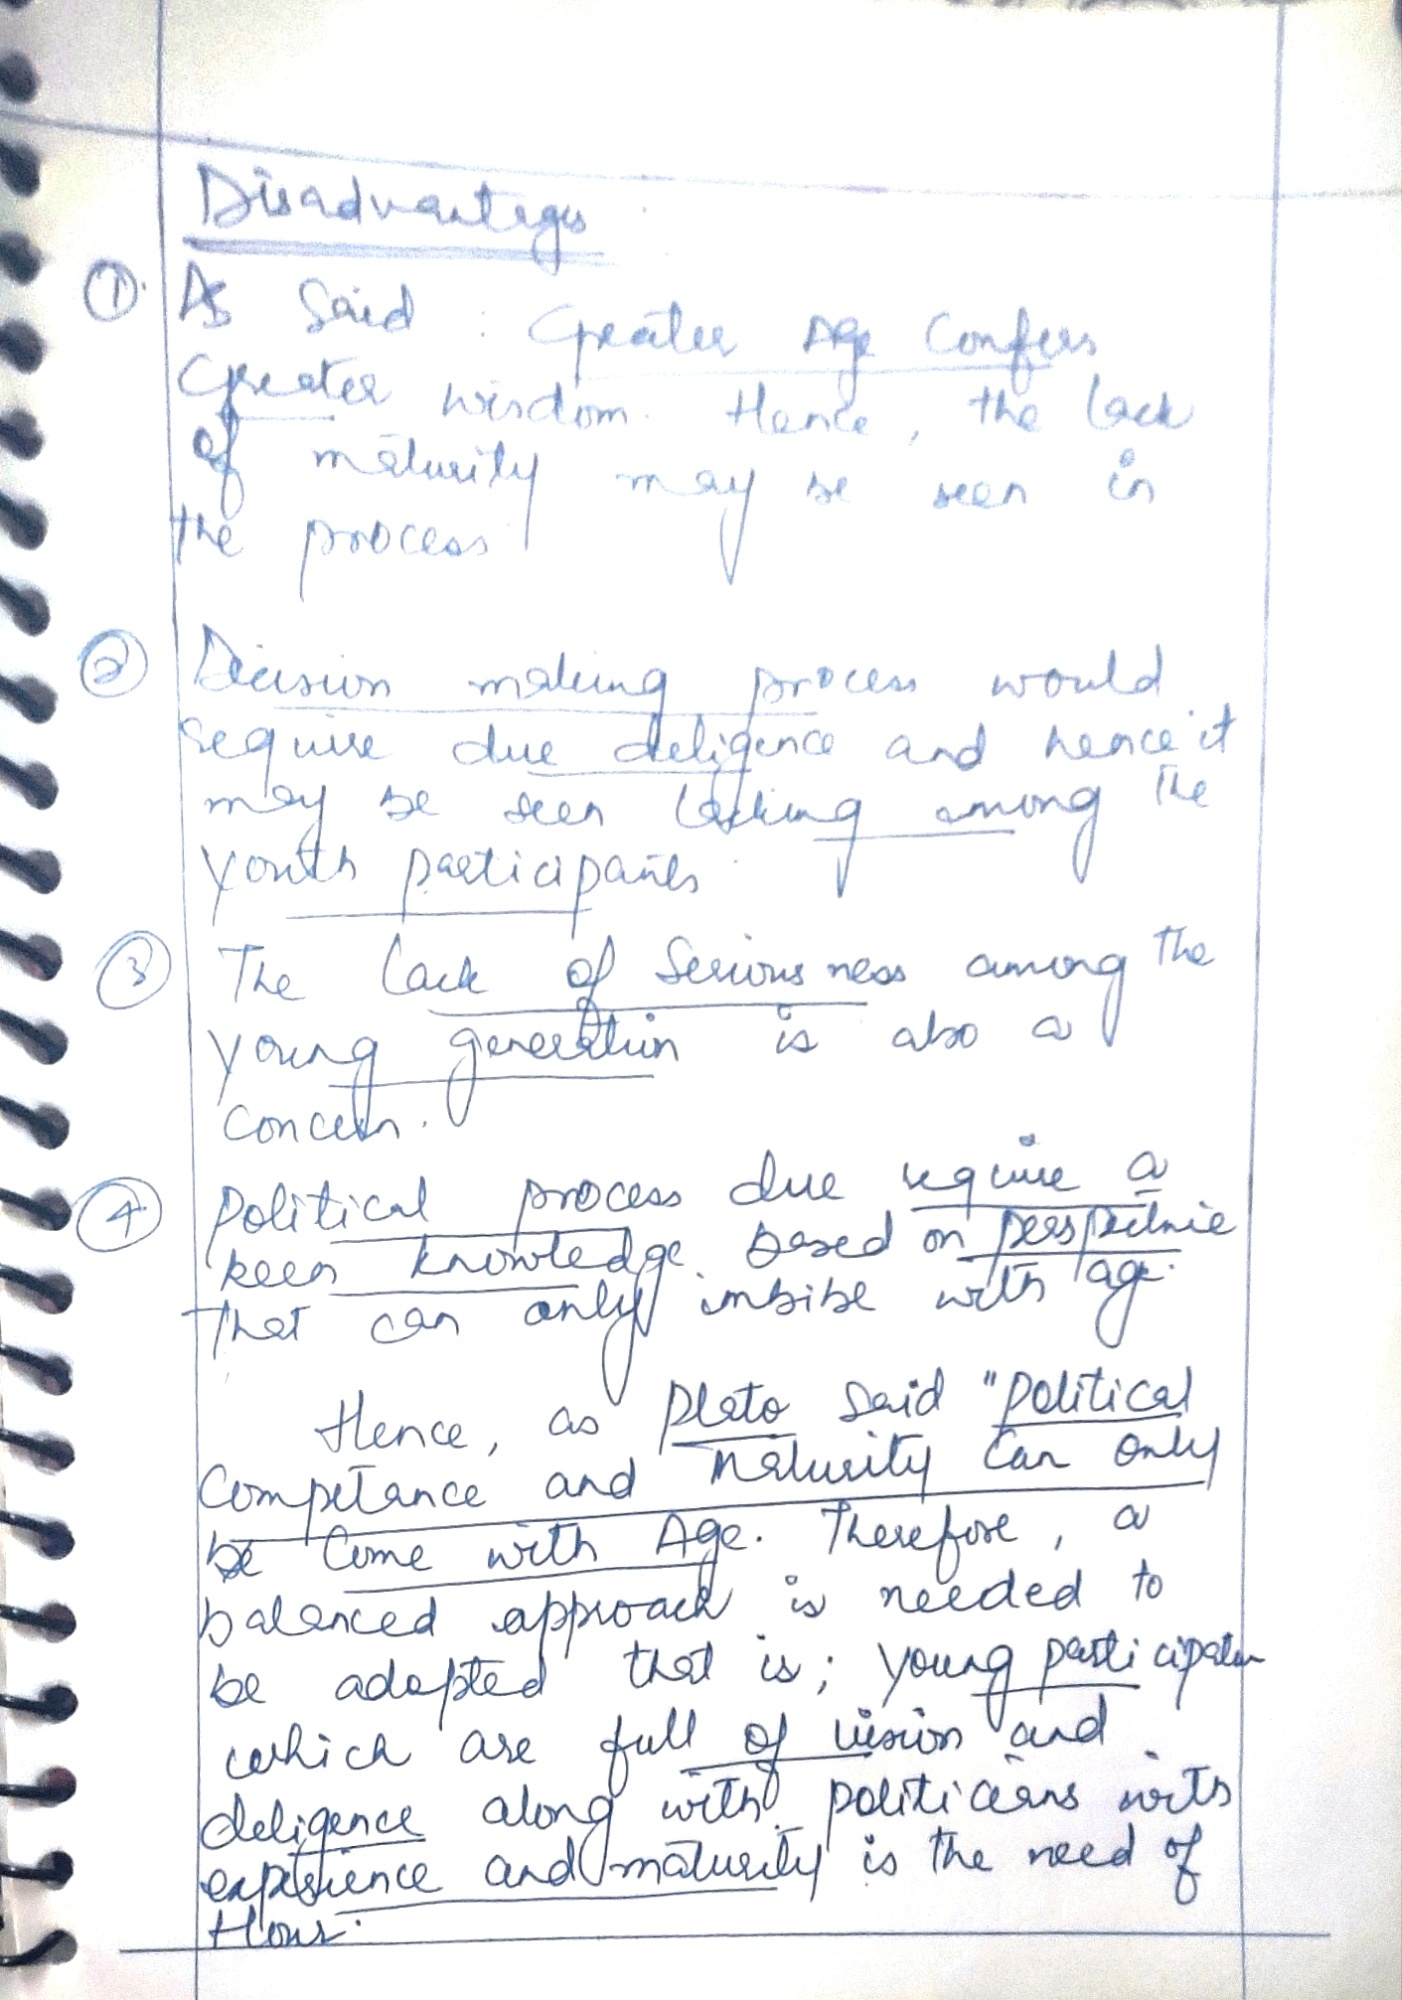 Disadvantages
① As said : Greater Age Confers
Greater wisdom. Hence, the lack
of maturity may be seen in
the process
② Decision making process would
require due deligence and hence it
may be seen lacking among the
youth participants
③ The lack of Seriousness among the
young generation is also a
concern.
④ Political process due require a
keen knowledge based on perspective
that can only imbibe with age.
Hence, as Plato said "Political
Competance and maturity can only
be come with Age. Therefore, a
balanced approach is needed to
be adopted that is; young
which are full of vision and
deligence along with politicians with
experience and maturity is the need of
Hour.